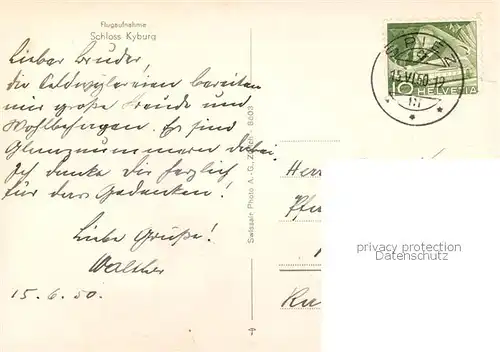 Flugaufnahme
Schloss Kyburg
Lieber Bruder,
die Caldwylereien bereiten
mir große Freude und
Wohlbehagen. Es sind
Glanznummern dabei.
Ich danke Dir herzlich
für das Gedenken!
Liebe Grüße!
Walther
15.6.50.
Swissair Photo A.-G., Zürich 8603
SPIEZ
15.VI.50-12
10 HELVETIA
Herr
Pfa
privacy protection
Datenschutz